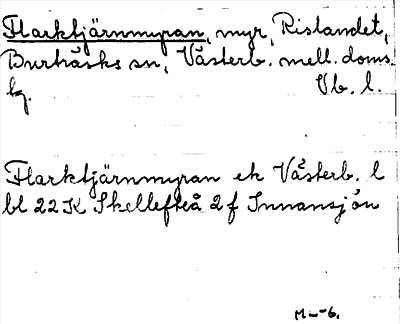 Flarktjärnmyran, myr, Rislandet,
Burträsks sn, Västerb. mell. doms.
Vb. l.
Flarktjärnmyran ek Västerb. l
bl 22K Skellefteå 2f Innansjön